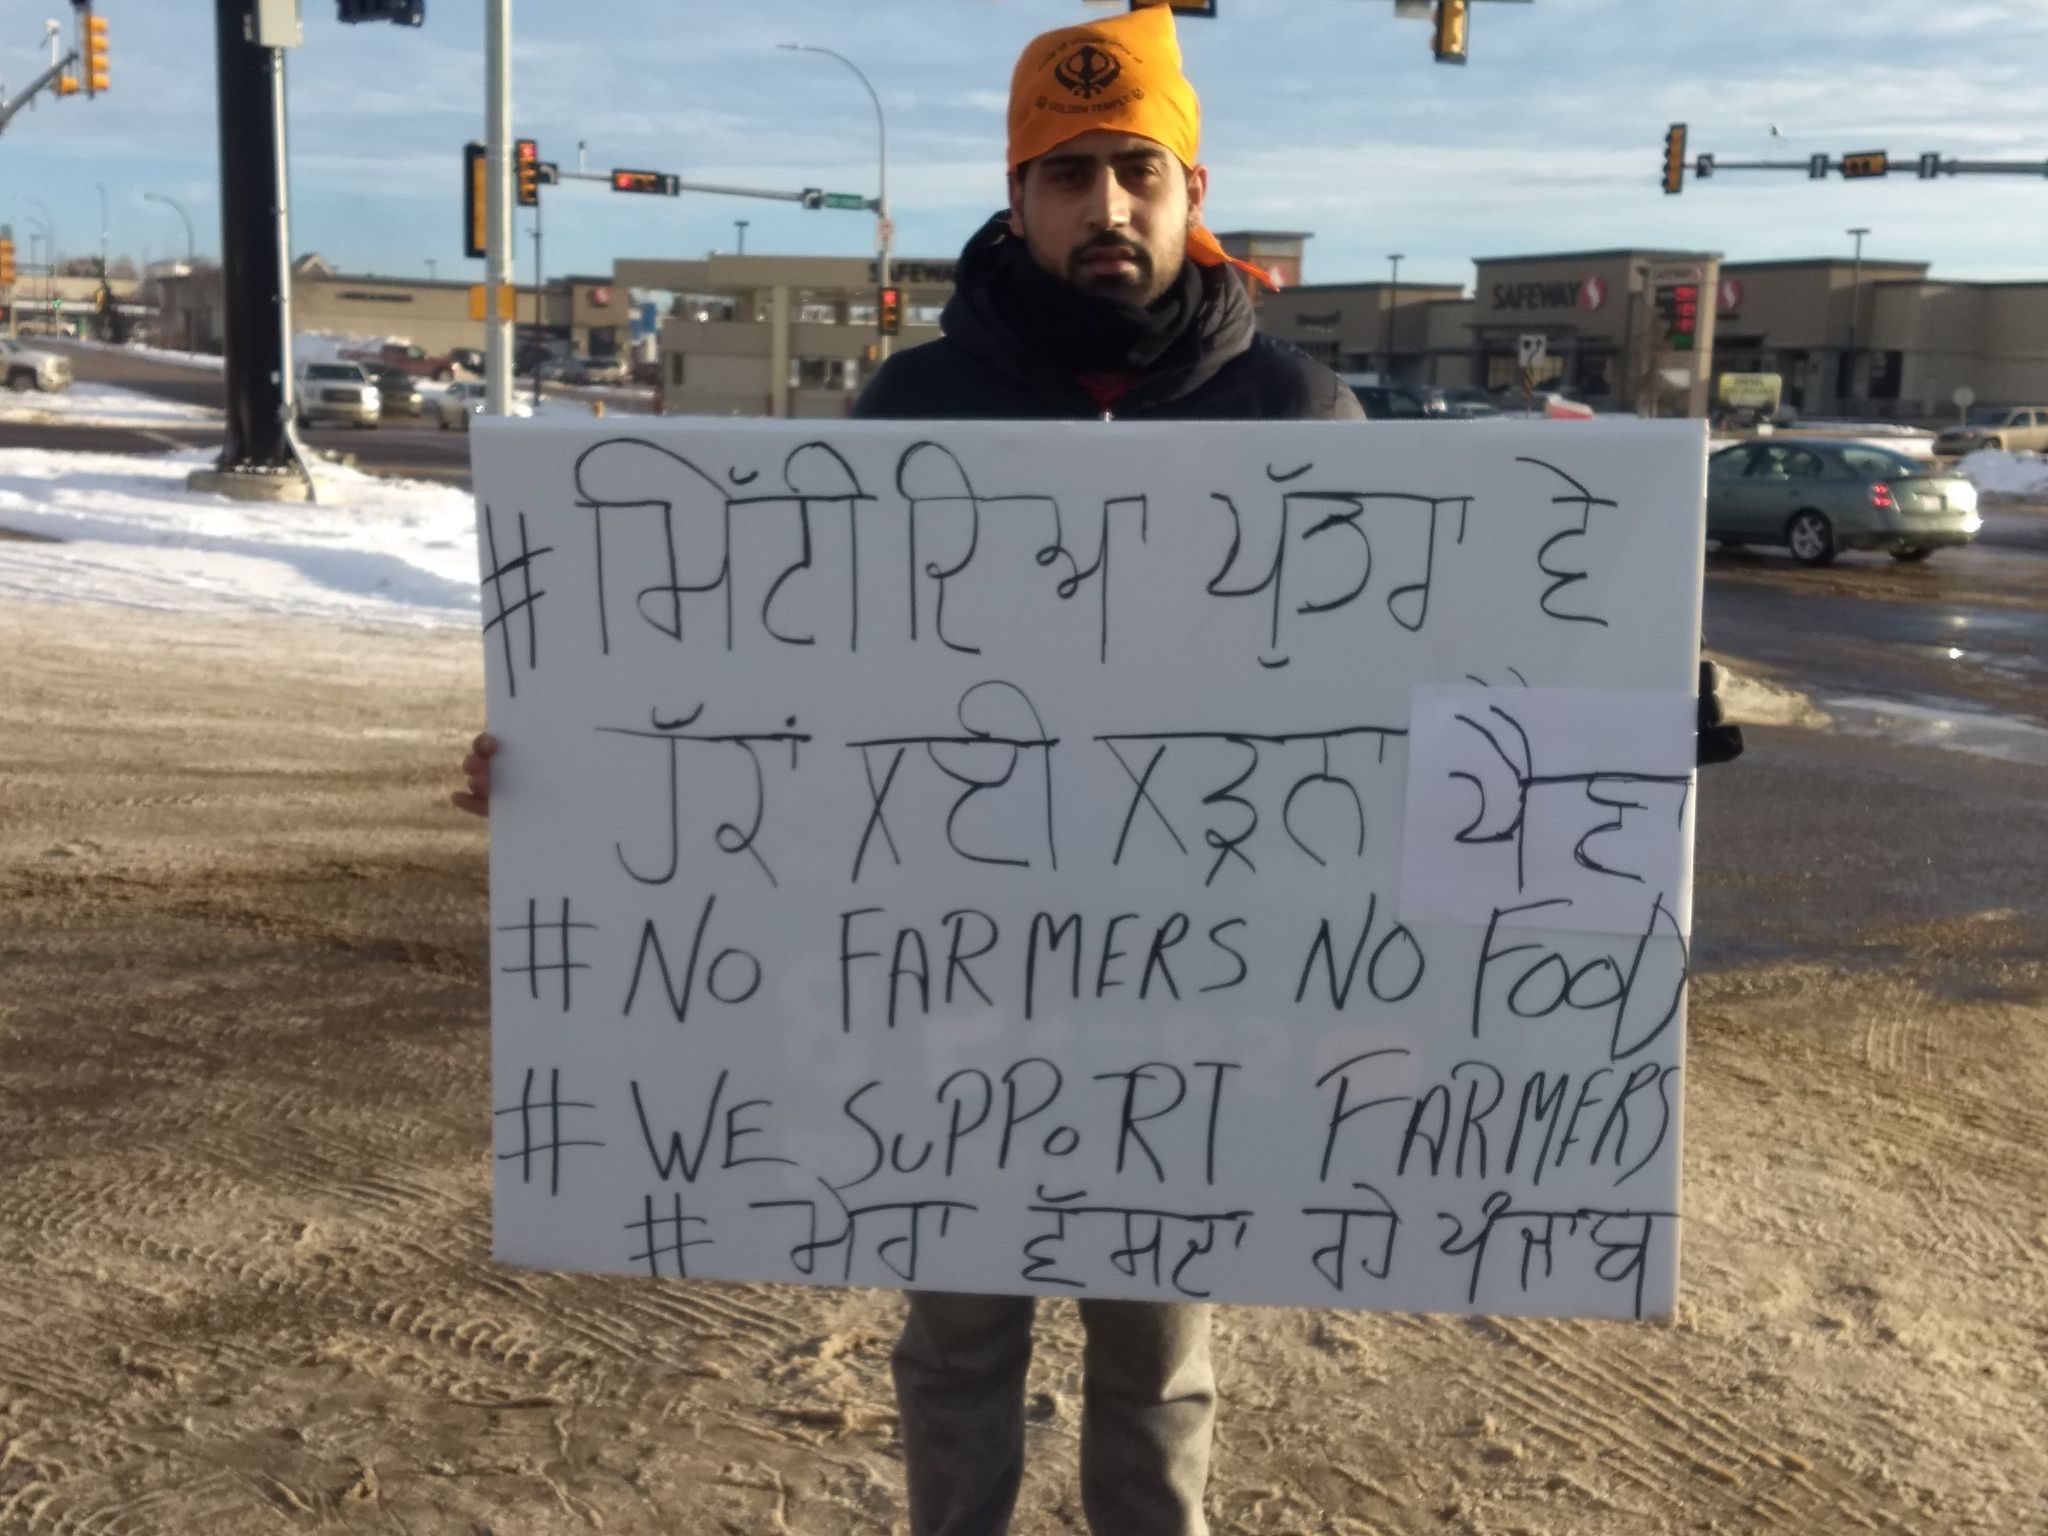 GOLDEN TEMPLE
SAFEWAY
SAFEWAY
#ਮਿੱਟੀ ਦਿਆ ਪੁੱਤਰਾ ਵੇ
ਹੱਕਾਂ ਲਈ ਲੜਨਾ ਪੈਣਾ
# NO FARMERS NO FOOD
# WE SUPPORT FARMERS
# ਮੇਰਾ ਵੱਸਦਾ ਰਹੇ ਪੰਜਾਬ